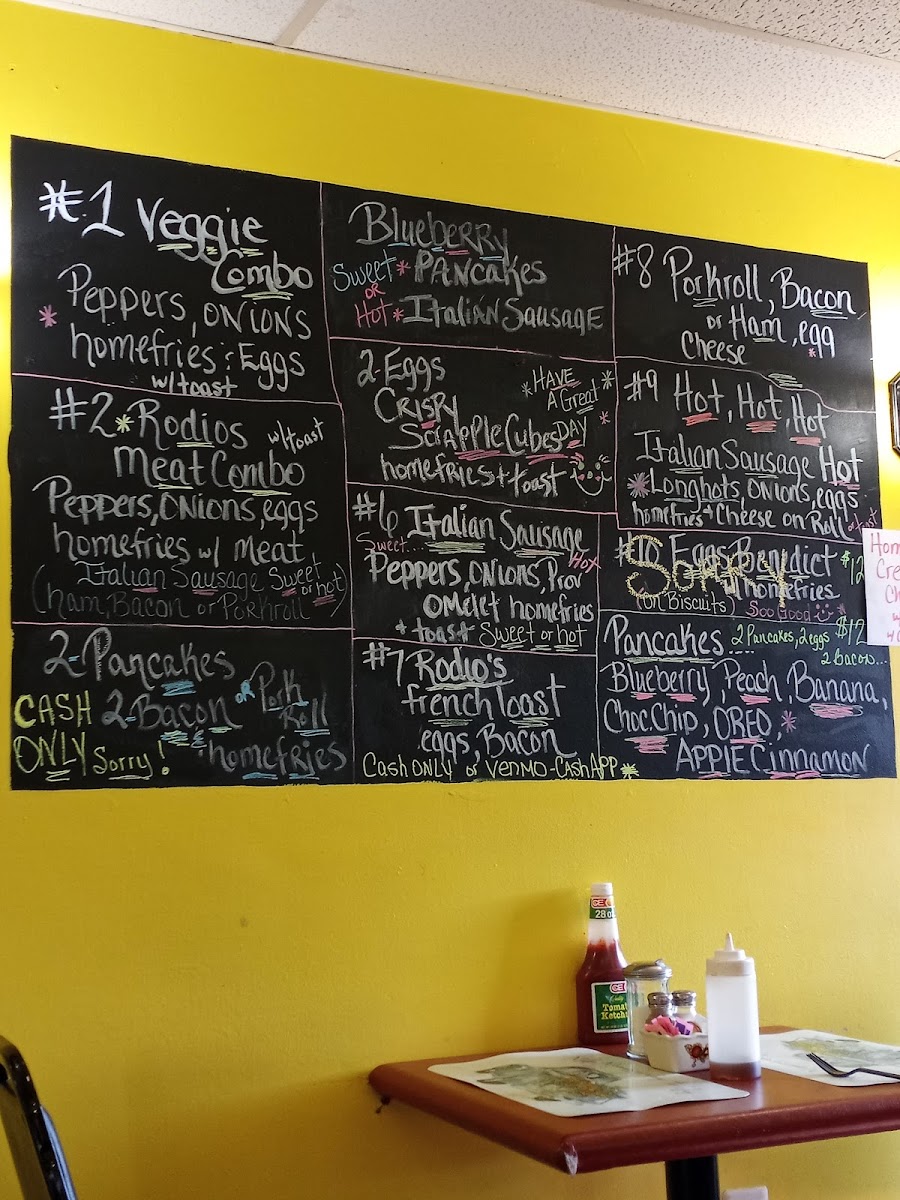 #1 Veggie
Combo
* Peppers, ONIONS
homefries : Eggs
w/toast
#2 * Rodios w/toast
Meat Combo
Peppers, ONIONS, eggs
homefries w/ Meat
(Italian Sausage Sweet or hot)
(ham, Bacon or Porkroll
2-Pancakes
2-Bacon OR Pork Roll
& homefries
CASH
ONLY Sorry!
Blueberry
Sweet * PANcakes
OR
Hot * Italian Sausage
2-Eggs
Crispy
Scrapple Cubes
homefries + toast
* HAVE *
A Great
DAY *
#6 Italian Sausage
Sweet... Hot
Peppers, ONIONS, Prov
OMelet homefries
+ toast Sweet or hot
#7 Rodio's
french Toast
eggs, Bacon
Cash ONLY or VENMO-CashApp *
#8 Porkroll, Bacon,
or Ham, egg
Cheese *
#9 Hot, Hot, Hot
Italian Sausage Hot
* Longhots, ONIONS, eggs
homefries + Cheese on Roll or toast
#10 Eggs Benedict $12
homefries
(on Biscuits) Soo Good
Sorry
Pancakes... 2 Pancakes, 2 eggs $12
2 bacon...
Blueberry, Peach, Banana,
Choc Chip, OREO, *
APPlE Cinnamon
Hom
Cre
Ch
28 oz
Tomat
Ketchu